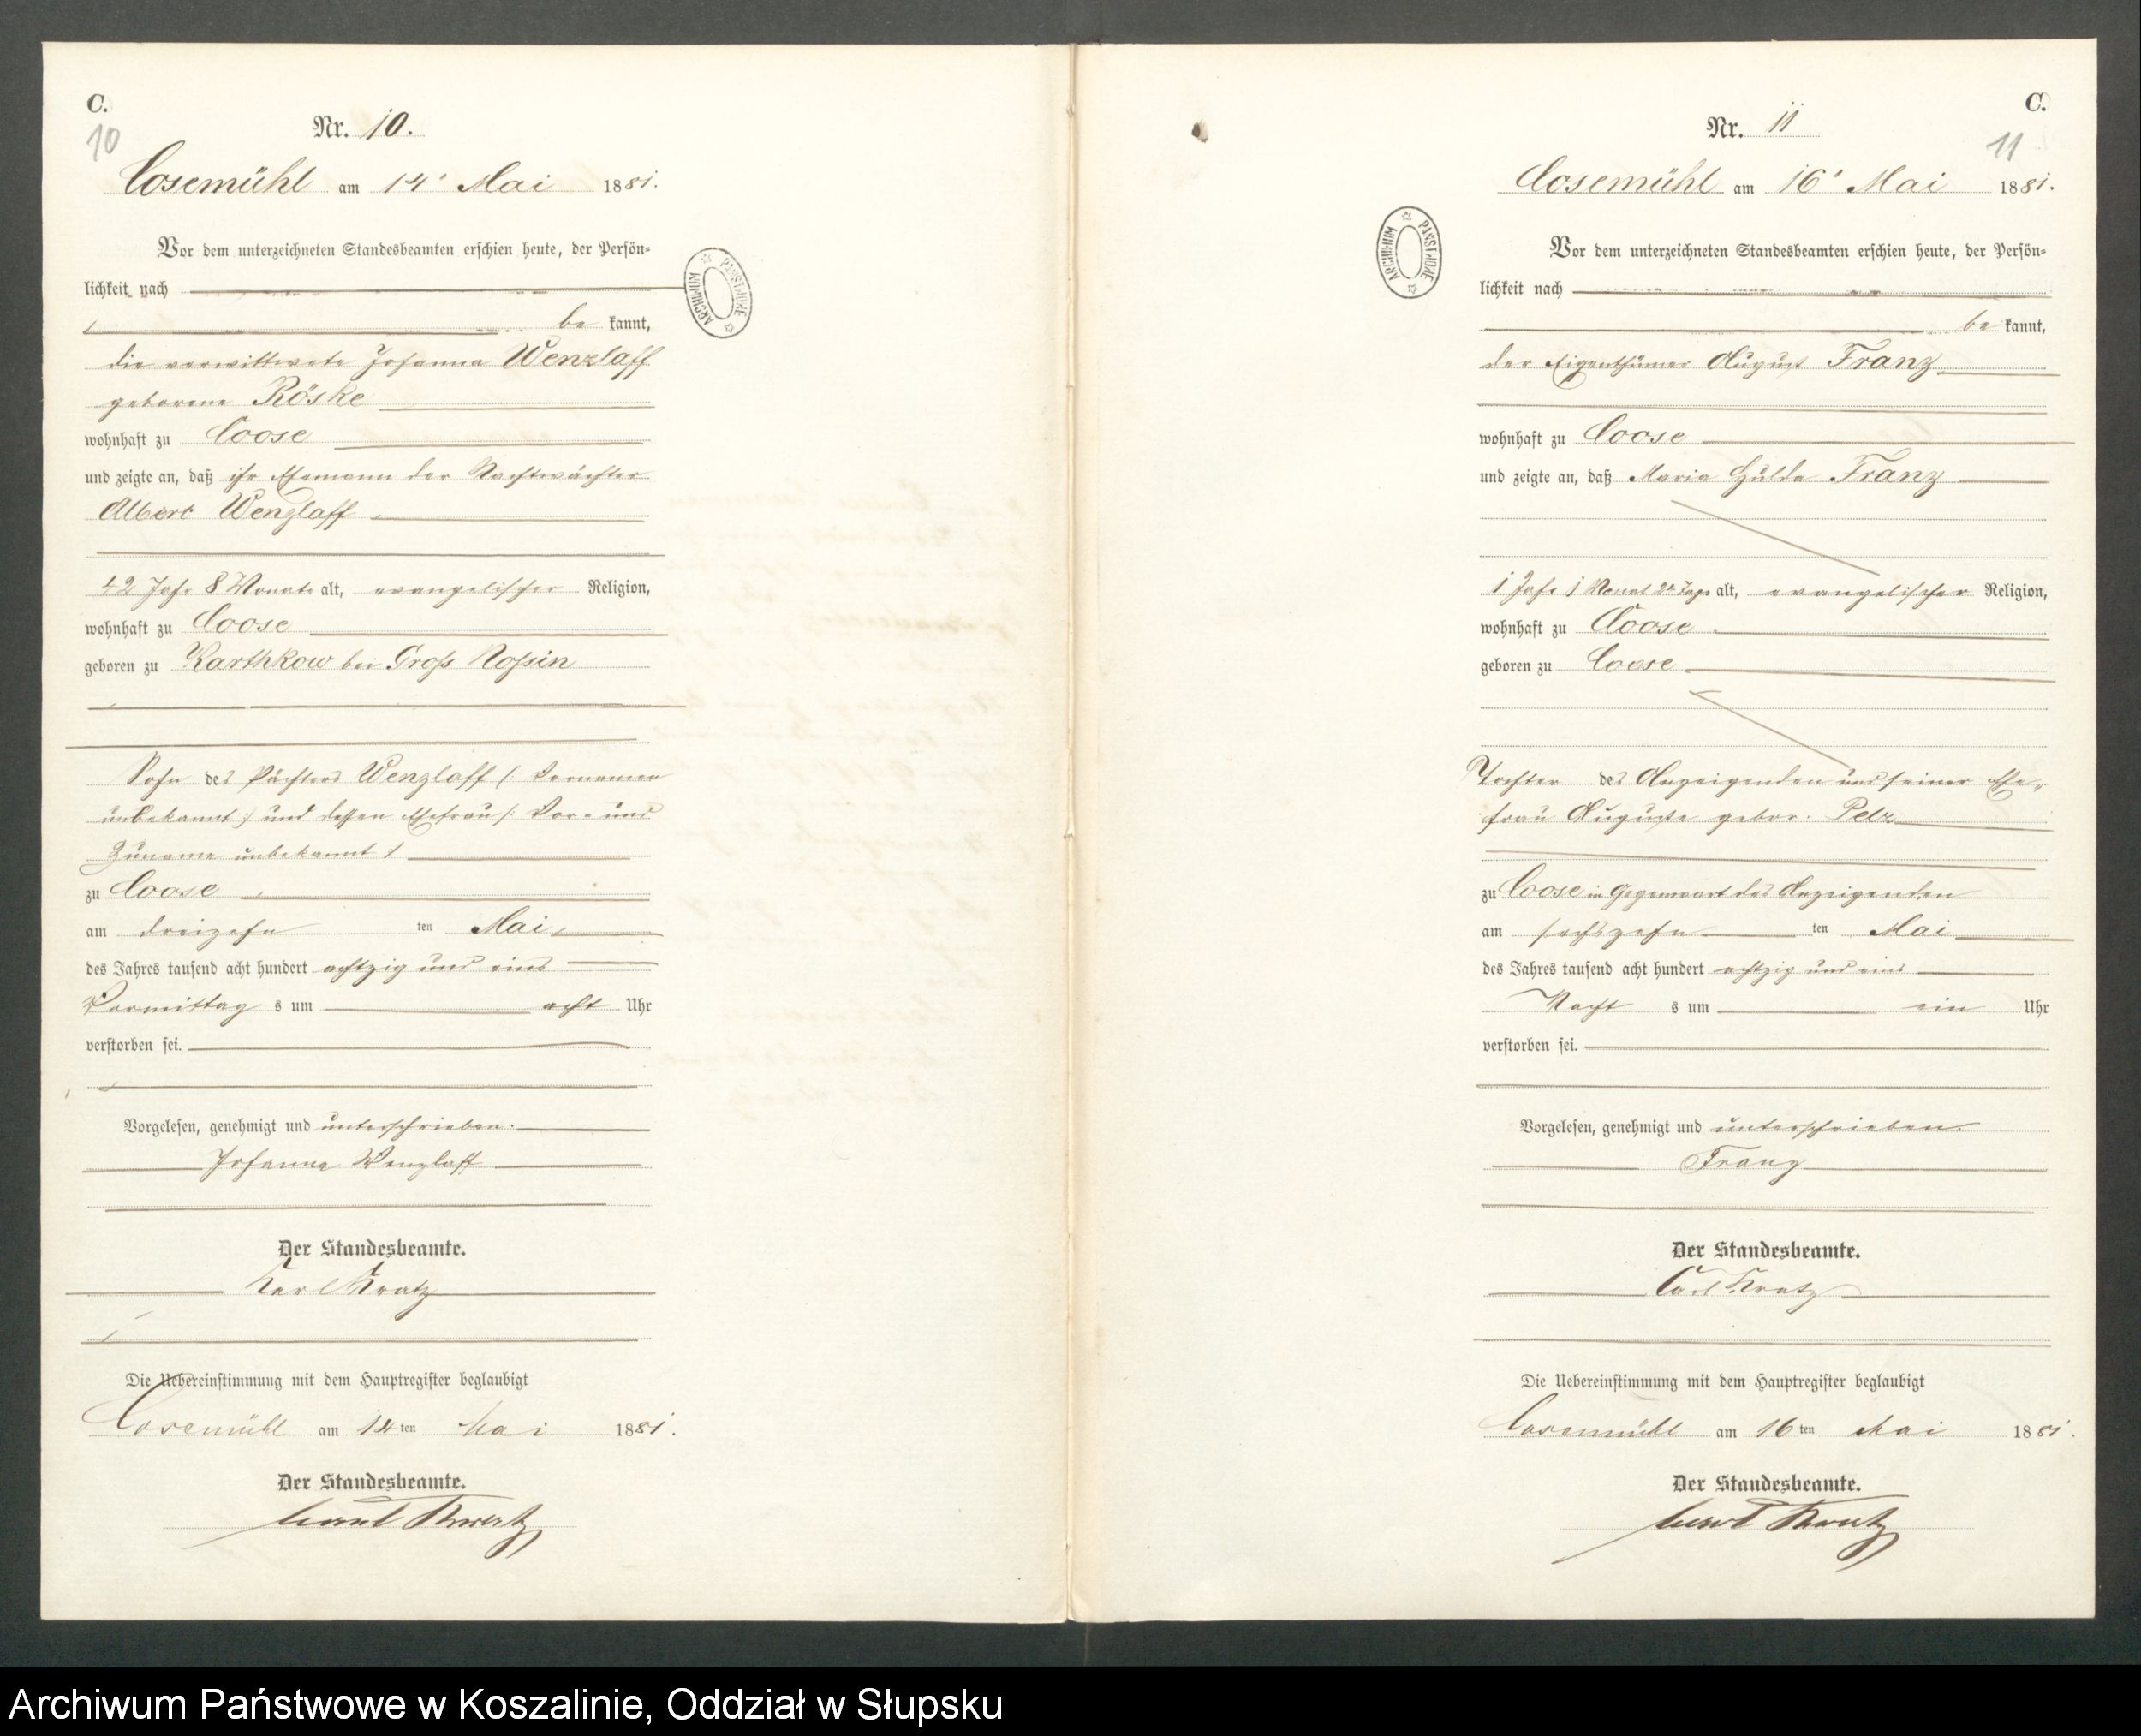 C.
10
Nr. 10.
Cosemühl am 14' Mai 1881.
Vor dem unterzeichneten Standesbeamten erschien heute, der Persön-
lichkeit nach
be kannt,
die verwittwete Johanna Wenzlaff
geborene Röske
wohnhaft zu Coose
und zeigte an, daß ihr Ehemann der Nachtwächter
Albert Wenzlaff
42 Jahr 8 Monate alt, evangelischer Religion,
wohnhaft zu Coose
geboren zu Karthkow bei Groß Nossin
Sohn des Pächters Wenzlaff (: Vornamen
unbekannt :) und dessen Ehefrau (: Vor- und
Zuname unbekannt :)
zu Coose
am dreizehn ten Mai
des Jahres tausend acht hundert achtzig und eins
Vormittag s um acht Uhr
verstorben sei.
Vorgelesen, genehmigt und unterschrieben.
Johanna Wenzlaff
Der Standesbeamte.
Karl Kratz
Die Uebereinstimmung mit dem Hauptregister beglaubigt
Cosemühl am 14 ten Mai 1881.
Der Standesbeamte.
Carl Kratz
ARCHIWUM PAŃSTWOWE
C.
11
Nr. 11
Cosemühl am 16' Mai 1881.
Vor dem unterzeichneten Standesbeamten erschien heute, der Persön-
lichkeit nach
be kannt,
der Eigenthümer August Franz
wohnhaft zu Coose
und zeigte an, daß Maria Hulda Franz
1 Jahr 1 Monat 24 Tage alt, evangelischer Religion,
wohnhaft zu Coose
geboren zu Coose
Tochter des Anzeigenden und seiner Ehe-
frau Auguste gebor. Pelz
zu Coose in Gegenwart des Anzeigenden
am sechszehn ten Mai
des Jahres tausend acht hundert achtzig und eins
Nacht s um ein Uhr
verstorben sei.
Vorgelesen, genehmigt und unterschrieben.
Franz
Der Standesbeamte.
Carl Kratz
Die Uebereinstimmung mit dem Hauptregister beglaubigt
Cosemühl am 16 ten Mai 1881.
Der Standesbeamte.
Carl Kratz
ARCHIWUM PAŃSTWOWE
Archiwum Państwowe w Koszalinie, Oddział w Słupsku